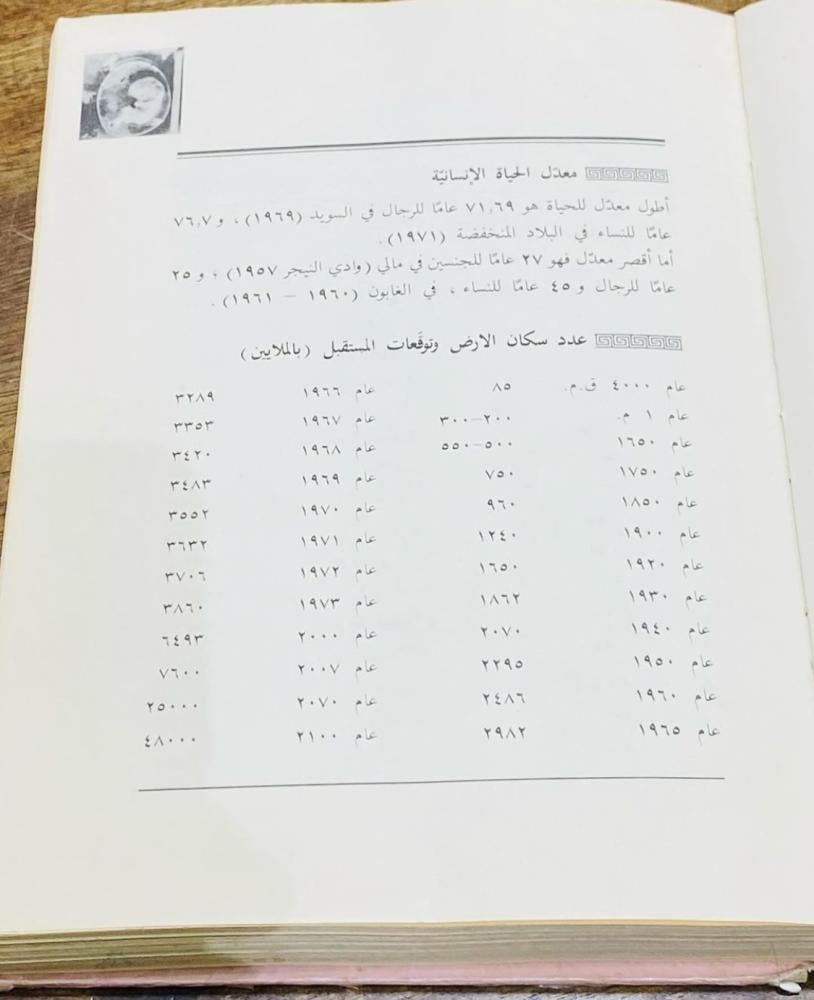 معدّل الحياة الإنسانيّة
أطول معدّل للحياة هو ٧١,٦٩ عامًا للرجال في السويد (١٩٦٩) ، و ٧٦,٧
عامًا للنساء في البلاد المنخفضة (١٩٧١) .
أما أقصر معدّل فهو ٢٧ عامًا للجنسين في مالي (وادي النيجر ١٩٥٧) ؛ و ٢٥
عامًا للرجال و ٤٥ عامًا للنساء ، في الغابون (١٩٦٠ – ١٩٦١) .
عدد سكان الارض وتوقّعات المستقبل (بالملايين)
عام ٤٠٠٠ ق.م. ٨٥ عام ١٩٦٦ ٣٢٨٩
عام ١ م. ٢٠٠–٣٠٠ عام ١٩٦٧ ٣٣٥٣
عام ١٦٥٠ ٥٠٠–٥٥٠ عام ١٩٦٨ ٣٤٢٠
عام ١٧٥٠ ٧٥٠ عام ١٩٦٩ ٣٤٨٣
عام ١٨٥٠ ٩٦٠ عام ١٩٧٠ ٣٥٥٢
عام ١٩٠٠ ١٢٤٠ عام ١٩٧١ ٣٦٣٢
عام ١٩٢٠ ١٦٥٠ عام ١٩٧٢ ٣٧٠٦
عام ١٩٣٠ ١٨٦٢ عام ١٩٧٣ ٣٨٦٠
عام ١٩٤٠ ٢٠٧٠ عام ٢٠٠٠ ٦٤٩٣
عام ١٩٥٠ ٢٢٩٥ عام ٢٠٠٧ ٧٦٠٠
عام ١٩٦٠ ٢٤٨٦ عام ٢٠٧٠ ٢٥٠٠٠
عام ١٩٦٥ ٢٩٨٢ عام ٢١٠٠ ٤٨٠٠٠